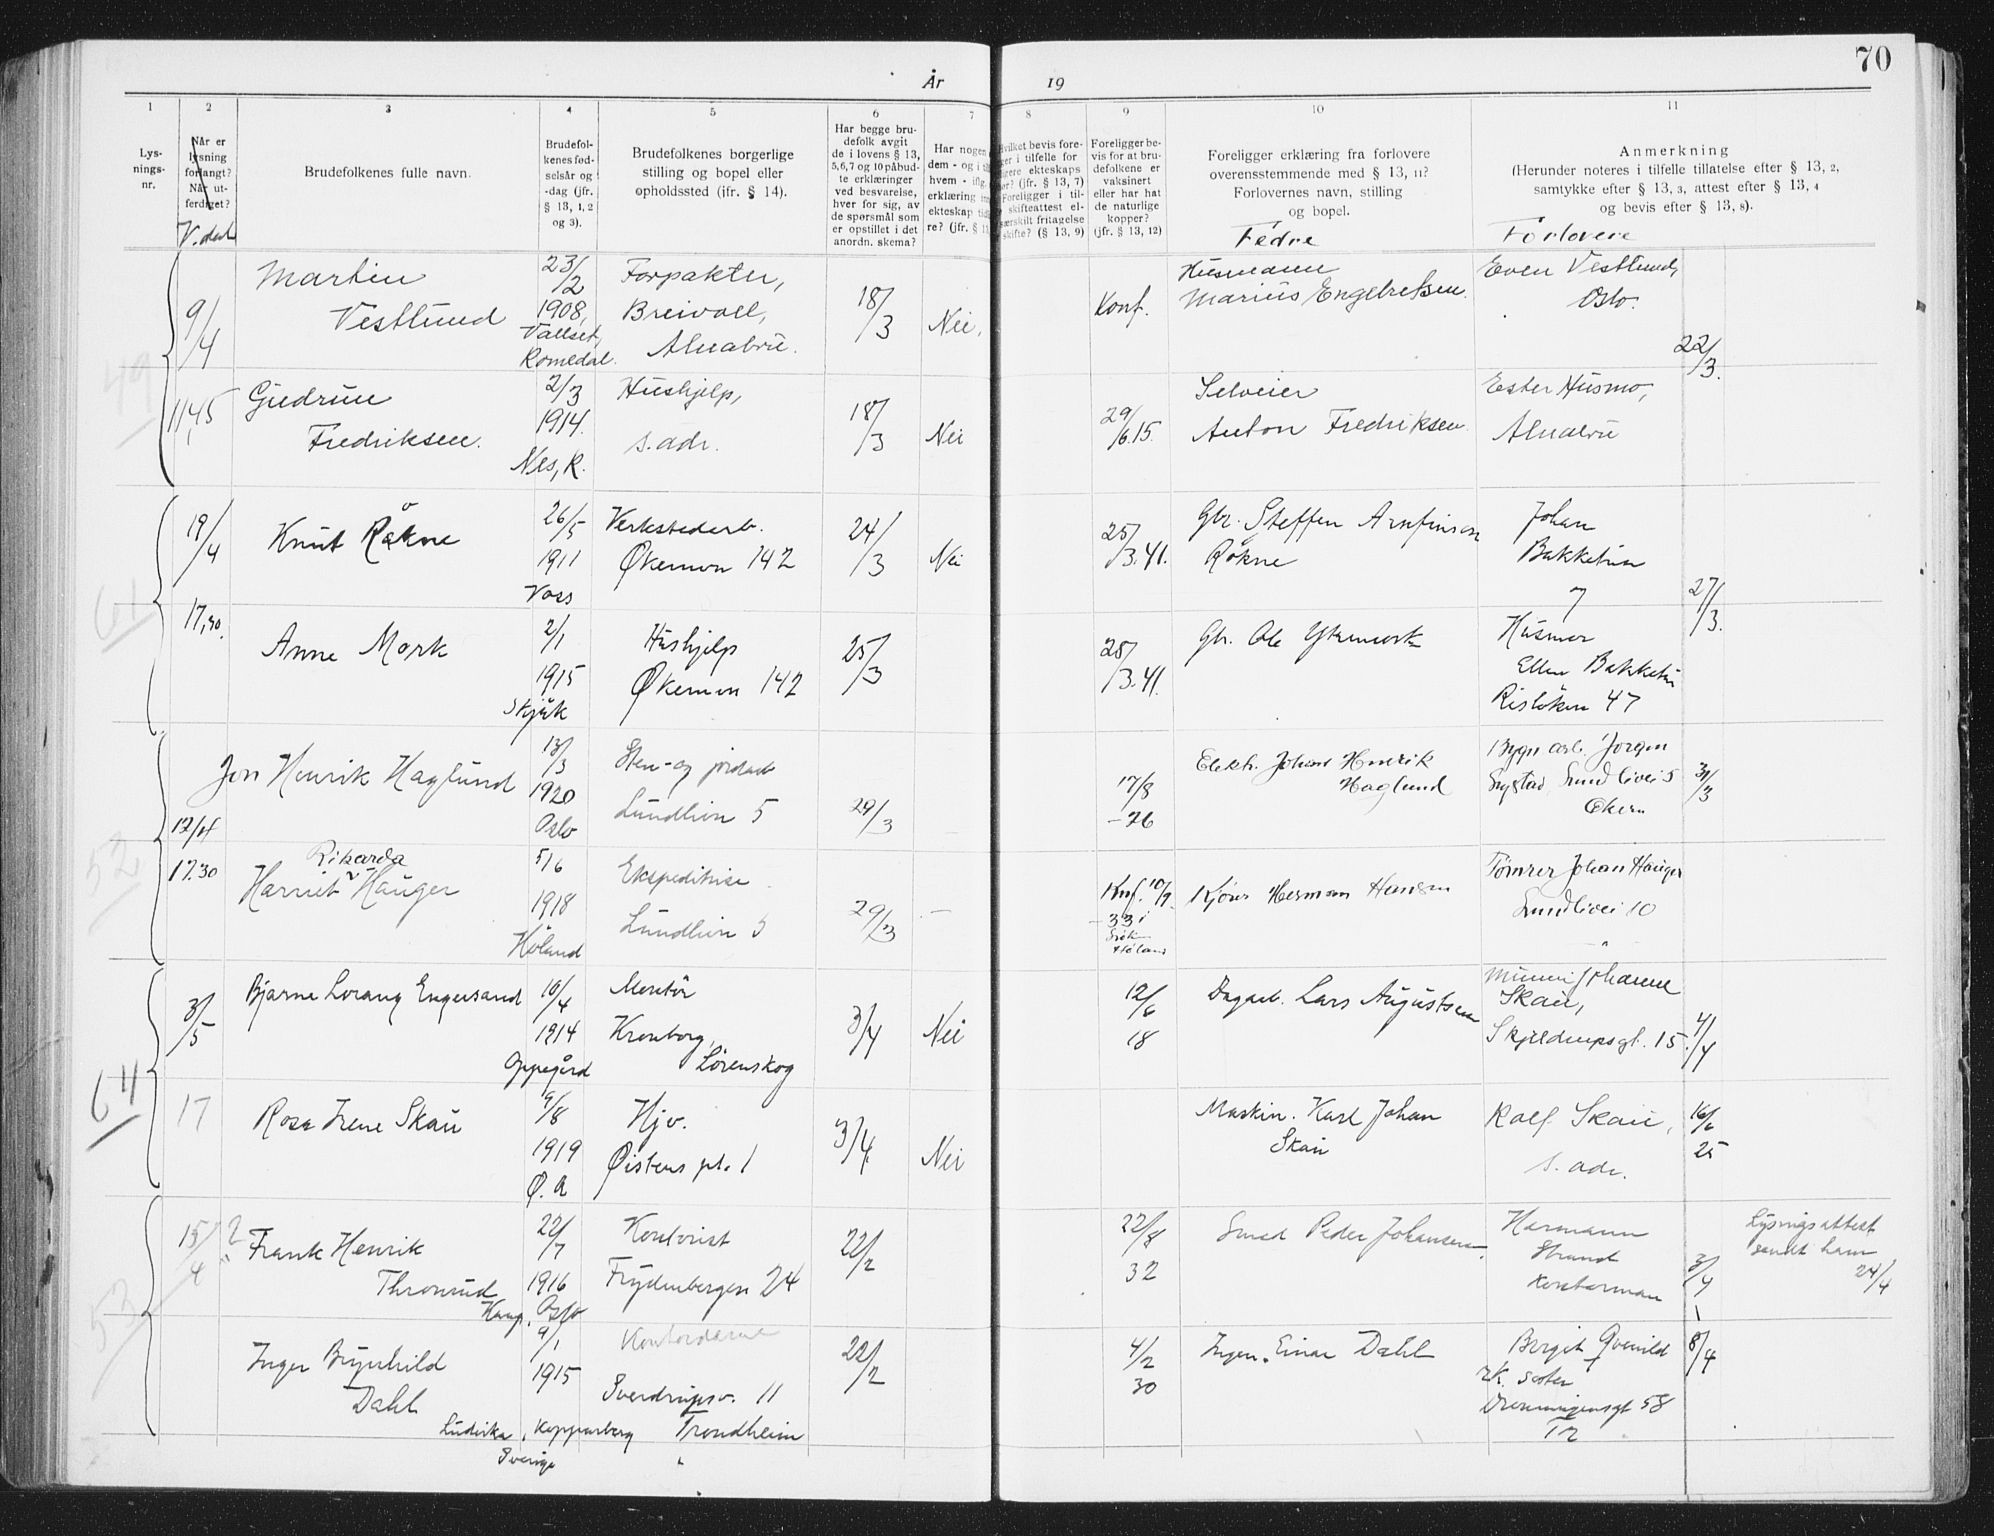 År 19
70
1 2 3 4 5 6 7 8 9 10 11
Lys-
nings-
nr.
Når er
lysning
forlangt?
Når ut-
ferdiget?
V. dat
Brudefolkenes fulle navn.
Brudefol-
kenes fød-
selsår og
-dag (jfr.
§ 13, 1, 2
og 3).
Brudefolkenes borgerlige
stilling og bopel eller
opholdssted (ifr. § 14).
Har begge bru-
defolk avgit
de i lovens § 13,
5,6,7 og 10 påbud-
te erklæringer
ved besvarelse,
hver for sig, av
de spørsmål som
er opstillet i det
anordn. skema?
Har nogen
dem - og i
hvem - iflg.
erklæring
ekteskap
re? (jfr. §
Hvilket bevis fore-
i tilfelle for
ekteskaps
(jfr. § 13, 7)
Foreligger i til-
skifteattest el-
særskilt fritagelse
skifte? (§ 13, 9)
Foreligger be-
vis for at bru-
defolkene er
vaksinert
eller har hat
de naturlige
kopper?
(jfr. § 13, 12)
Foreligger erklæring fra forlovere
overensstemmende med § 13, 11?
Forlovernes navn, stilling
og bopel.
Fedre
Anmerkning
(Herunder noteres i tilfelle tillatelse efter § 13, 2,
samtykke efter § 13, 3, attest efter § 13, 4
og bevis efter § 13, 8).
Forlovere
49
9/4
Martin
Vestlund
23/2
1908,
Vallset,
Romedal.
Forpakter,
Breivoll,
Alnabru.
18/3
Nei,
Konf.
Husmann
Marius Engebretsen.
Even Vestlund,
Oslo.
22/3.
11,45
Gudrun
Fredriksen.
2/3
1914.
Nes, R.
Hushjelp,
s. adr.
18/3
Nei
29/6.15.
Selveier
Anton Fredriksen
Ester Husmo,
Alnabru
61
19/4
Knut Røkne
26/5
1911
Voss
Verkstedarb.
Økernvn 142
24/3
Nei
25/3.41.
Gbr. Steffen Arnfinson
Røkne
Johan
Bakketun
27/3.
17,30.
Anne Mork
2/1
1915
Skjåk
Hushjelp
Økernvn 142
25/3
25/3.41.
Gbr. Ole Ytremork
Husmor
Ellen Bakketun
Risløkvn 47
52
12/4
Jon Henrik Haglund
13/3
1920
Oslo
Sten- og jordarb
Lundlivn 5
29/3
-
17/8
-26
Elektr. Johan Henrik
Haglund
Bygn.arb. Jørgen
Lundlivei 5
Økern
31/3
17.30
Rikarda
Harriet Hauger
5/6
1918
Høland
Ekspeditrise
Lundlivn 5
29/3
-
Knf. 10/9
-33 i
Høland
Kjører Herman Hansen
Tømrer Johan Hauger
Lundlivei 10
"
64
3/5
Bjarne Lorang Engersand
10/4
1914
Oppegård
Montør
Kronborg,
Lørenskog
3/4
Nei
12/6
18
Dagarb. Lars Augustsen
Minni Johanne
Skau,
Skjeldrupsgt. 15.
4/4
17
Rosa Irene Skau
9/8
1919
Ø. A
Hjv.
Øistens pl. 1
3/4
Nei
Maskin. Karl Johan
Skau
Rolf Skau,
s. adr.
16/6
25
53
15/4
?
Frank Henrik
Thronrud
22/7
1916
Kamp. Oslo
Kontorist
Frydenbergvn 24
22/2
22/8
32
Smed Peder Johansen.
Harmann
Strand
Kontorman
3/4
Lysningsattest
sendt ham
24/4
Inger Brynhild
Dahl
9/1
1915
Ludvika, Kopparberg
Sverige
Kontordame
Sverdrupsv. 11
Trondheim
22/2
4/2
30
Ingen. Einar Dahl
Borgit Qvenild
rk. søster
Dronningensgt 58
Tr
8/4